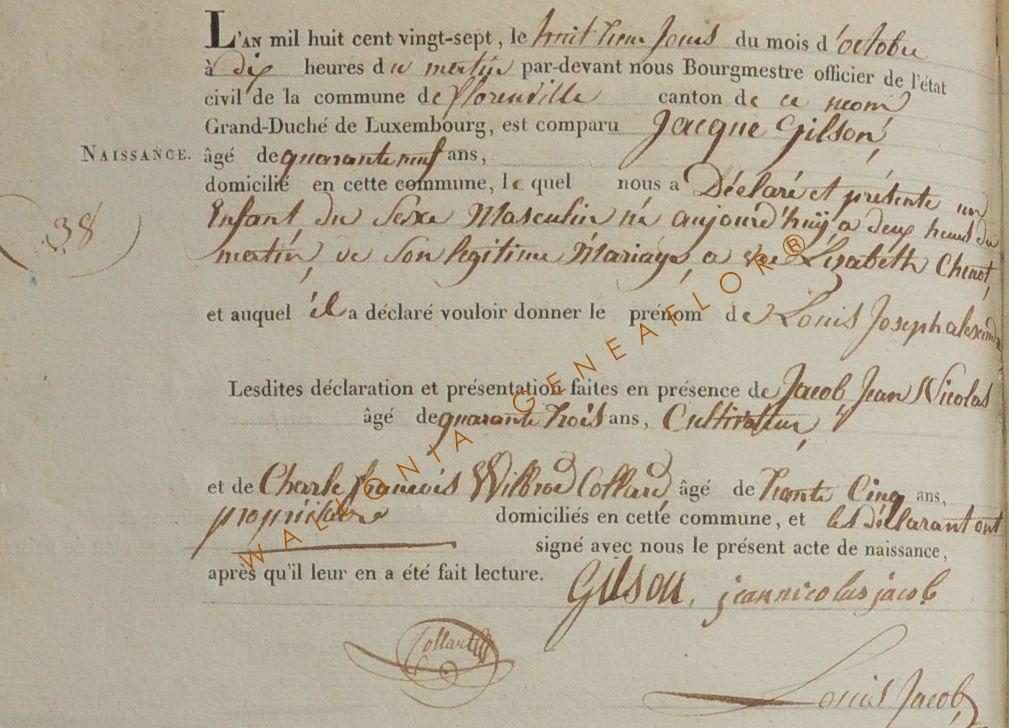 L'AN mil huit cent vingt-sept, le huitième jours du mois d'octobre
à dix heures du matin par-devant nous Bourgmestre officier de l'état
civil de la commune de florenville canton de ce nom
Grand-Duché de Luxembourg, est comparu Jacque Gilson,
NAISSANCE. âgé de quarante neuf ans,
domicilié en cette commune, le quel nous a Déclaré et présente un
38
Enfant du Sexe Masculin né aujourd'huÿ a deux heures du
matin, de Son legitime Mariage, a Lisabeth Chenot,
et auquel il a déclaré vouloir donner le prénom de Louis Joseph alexandre
Lesdites déclaration et présentation faites en présence de Jacob, Jean Nicolas
âgé de quarante trois ans, Cultivateur,
et de Charle françois Wilbrod Collard âgé de trente Cinq ans,
propriétaire domiciliés en cette commune, et les déclarant ont
signé avec nous le présent acte de naissance,
après qu'il leur en a été fait lecture.
Gilson, jean nicolas jacob
Collard
Louis Jacob
WALLONIA GENEAFLOR®